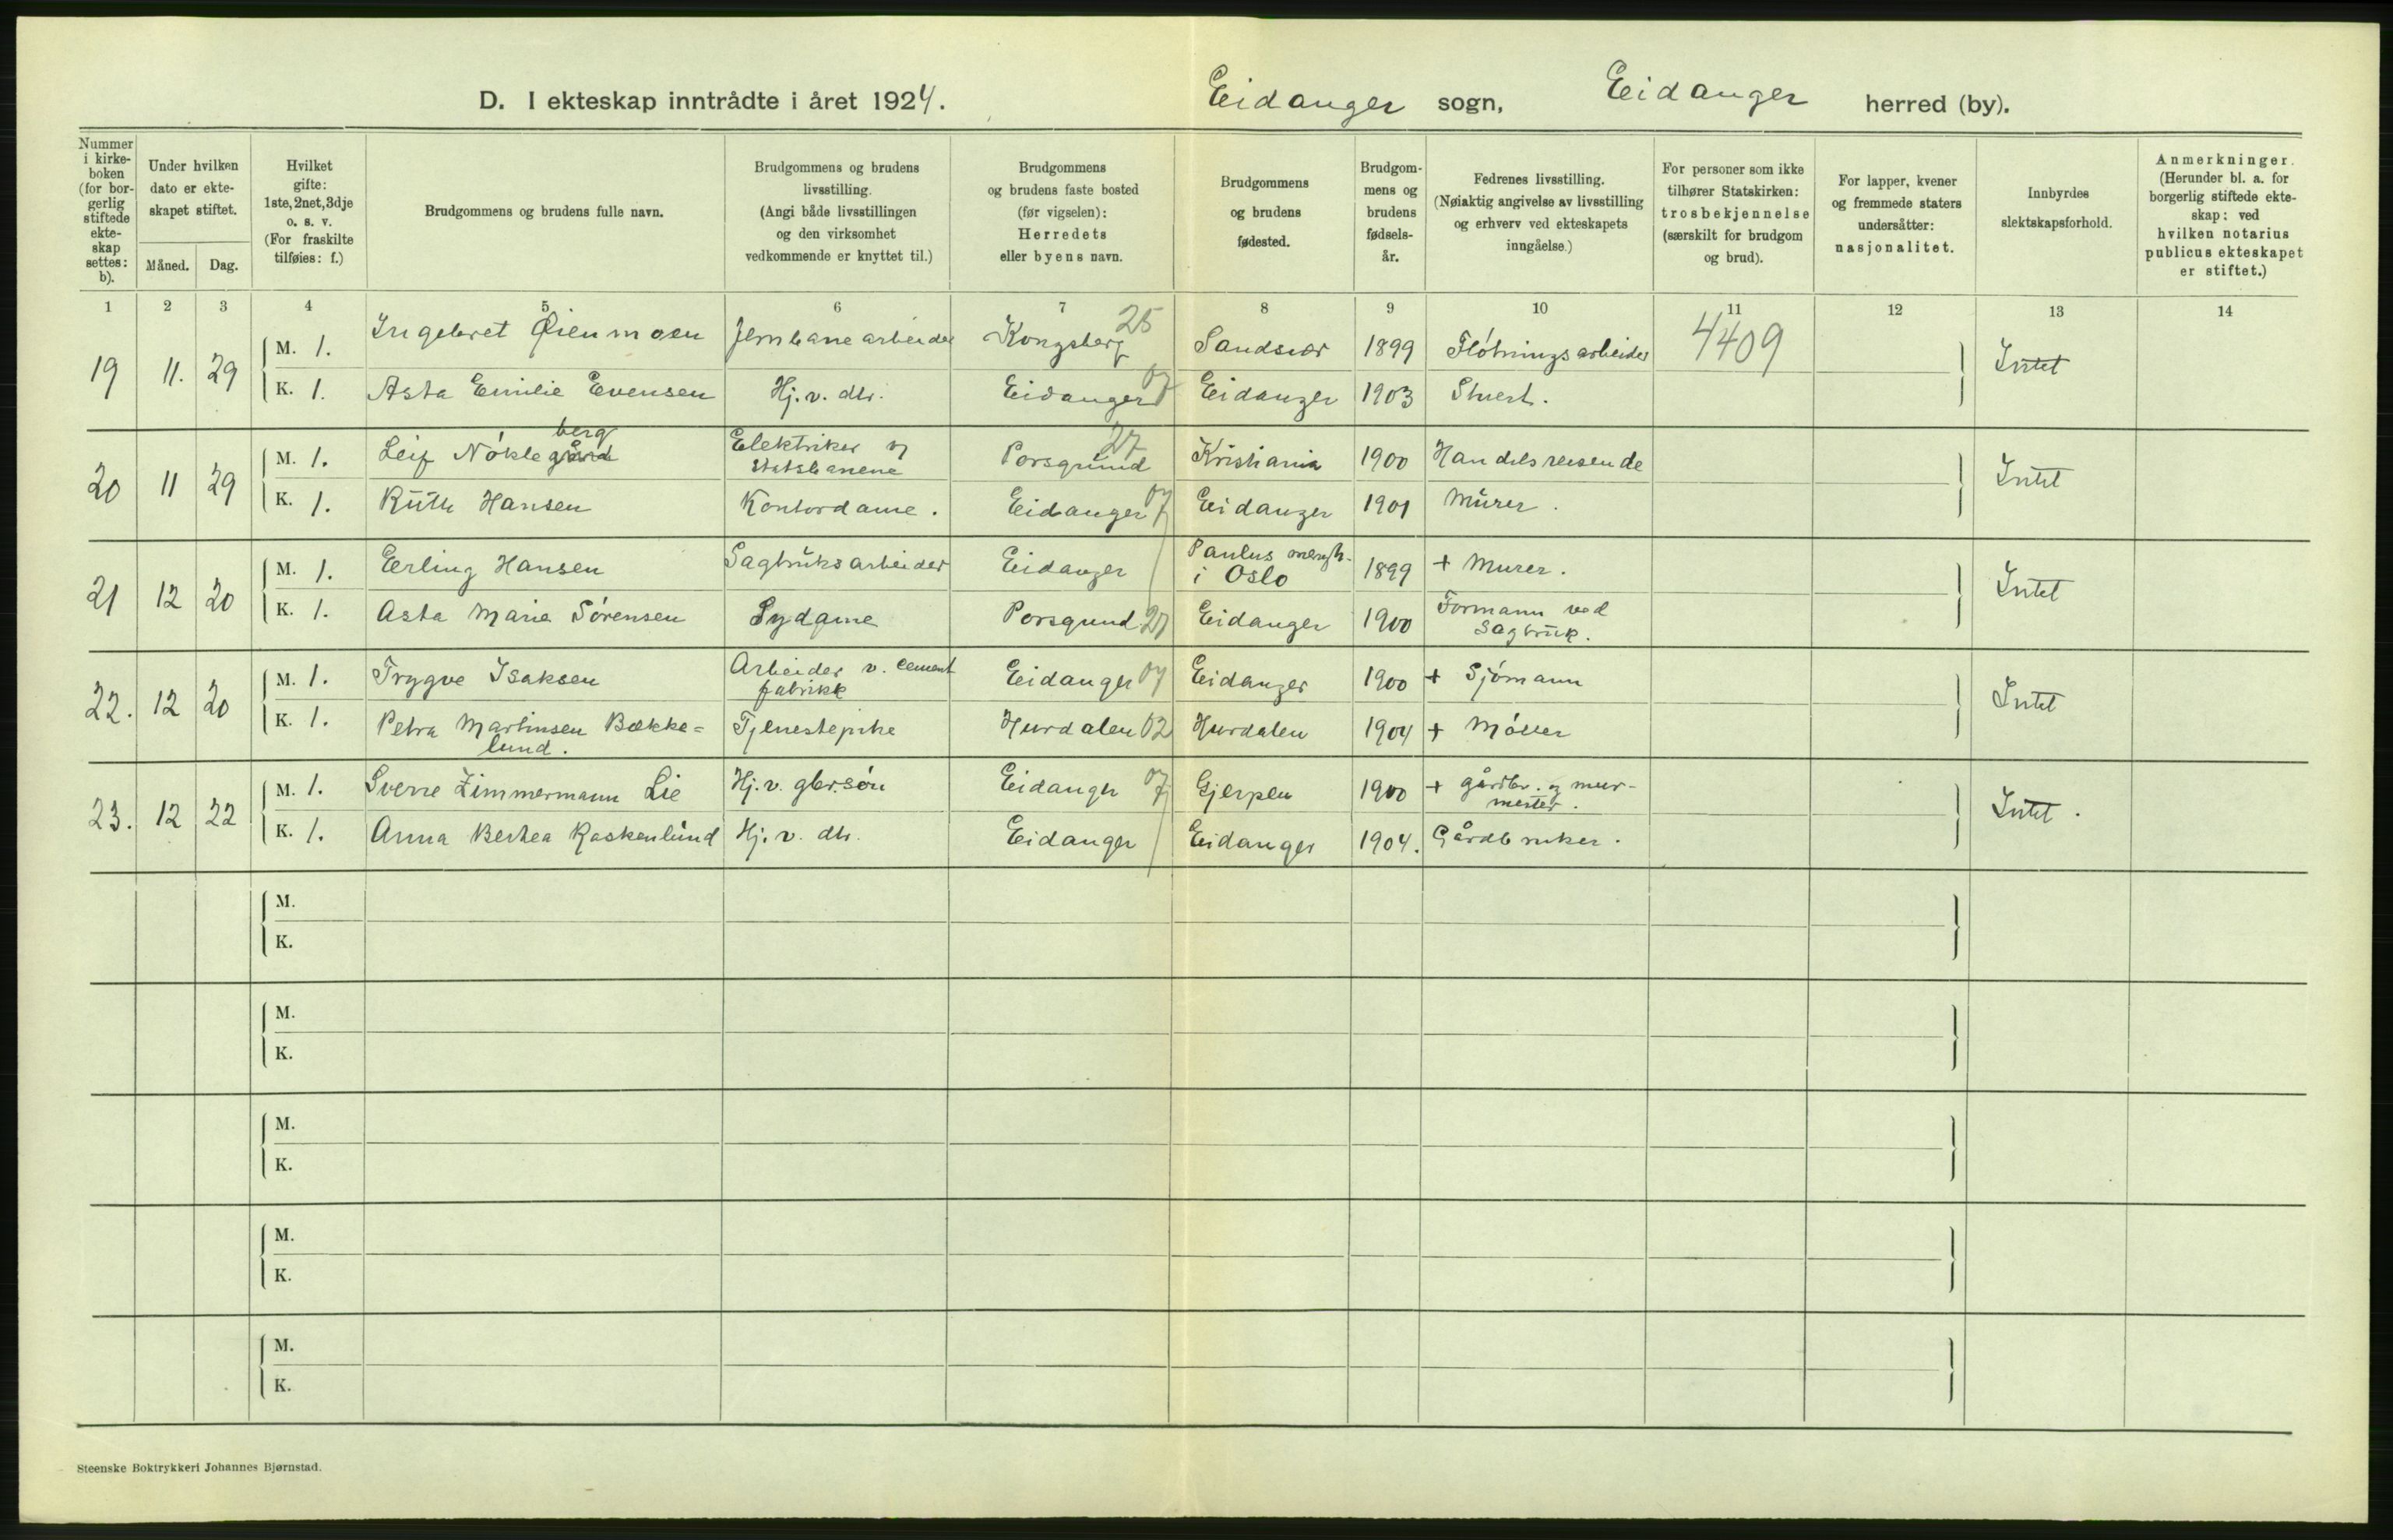 D. I ekteskap inntrådte i året 1924. Eidanger sogn, Eidanger herred (by).
Nummer i kirke-boken (for bor-gerlig stiftede ekte-skap settes: b).
Under hvilken dato er ekte-skapet stiftet.
Måned. Dag.
Hvilket gifte: 1ste, 2net, 3dje o. s. v. (For fraskilte tilføies: f.)
Brudgommens og brudens fulle navn.
Brudgommens og brudens livsstilling. (Angi både livsstillingen og den virksomhet vedkommende er knyttet til.)
Brudgommens og brudens faste bosted (før vigselen): Herredets eller byens navn.
Brudgommens og brudens fødested.
Brudgom-mens og brudens fødsels-år.
Fedrenes livsstilling. (Nøiaktig angivelse av livsstilling og erhverv ved ekteskapets inngåelse.)
For personer som ikke tilhører Statskirken: trosbekjennelse (særskilt for brudgom og brud).
For lapper, kvener og fremmede staters undersåtter: nasjonalitet.
Innbyrdes slektskapsforhold.
Anmerkninger. (Herunder bl. a. for borgerlig stiftede ekte-skap: ved hvilken notarius publicus ekteskapet er stiftet.)
1 2 3 4 5 6 7 8 9 10 11 12 13 14
19 11. 29 M. 1. Ingebret Øienmoen Jernbanearbeider Kongsberg 25 Sandsvær 1899 Fløtningsarbeider 4409 Intet
K. 1. Asta Emilie Evensen Hj. v. dtr. Eidanger 07 Eidanger 1903 Stuert.
20 11 29 M. 1. Leif Nøklegård berg Elektriker v Statsbanene Porsgrund 27 Kristiania 1900 Handelsreisende Intet
K. 1. Ruth Hansen Kontordame. Eidanger 07 Eidanger 1901 Murer.
21 12 20 M. 1. Erling Hansen Sagbruksarbeider Eidanger Paulus menigh. i Oslo 1899 + Murer. Intet
K. 1. Asta Marie Sørensen Sydame Porsgund 27 Eidanger 1900 Formann ved Sagbruk.
22. 12 20 M. 1. Trygve Isaksen Arbeider v. cement fabrikk Eidanger 07 Eidanger 1900 + Sjømann Intet
K. 1. Petra Martinsen Bække=lund. Tjenestepike Hurdalen 02 Hurdalen 1904 + Møller
23. 12 22 M. 1. Sverre Zimmermann Lie Hj. v. gbr.søn Eidanger 07 Gjerpen 1900 + gårdbr. og mur-mester. Intet.
K. 1. Anna Berthea Raskenlund Hj. v. dtr. Eidanger Eidanger 1904. Gårdbruker.
M.
K.
M.
K.
M.
K.
M.
K.
M.
K.
Steenske Boktrykkeri Johannes Bjørnstad.